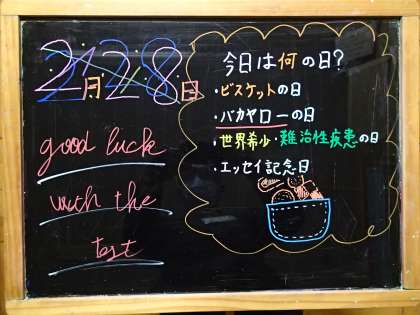 2月28日
good luck
with the
test
今日は何の日?
・ビスケットの日
・バカヤローの日
・世界希少・難治性疾患の日
・エッセイ記念日